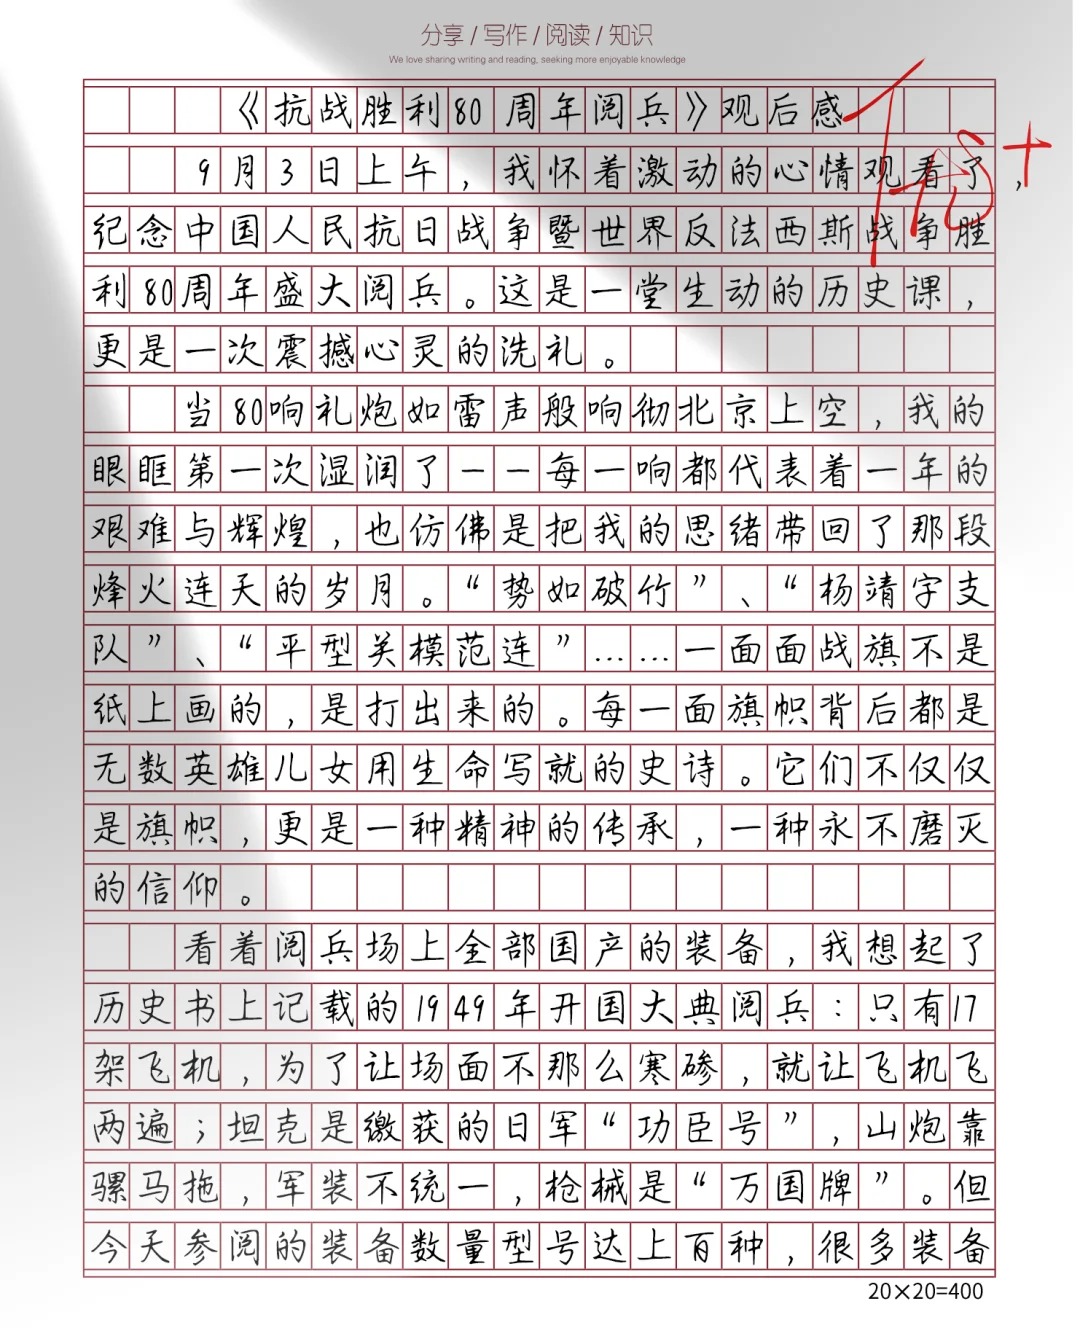 分享 / 写作 / 阅读 / 知识
We love sharing writing and reading, seeking more enjoyable knowledge
《抗战胜利80周年阅兵》观后感
9月3日上午，我怀着激动的心情观看了，
纪念中国人民抗日战争暨世界反法西斯战争胜
利80周年盛大阅兵。这是一堂生动的历史课，
更是一次震撼心灵的洗礼。
当80响礼炮如雷声般响彻北京上空，我的
眼眶第一次湿润了——每一响都代表着一年的
艰难与辉煌，也仿佛是把我的思绪带回了那段
烽火连天的岁月。“势如破竹”、“杨靖宇支
队”、“平型关模范连”……一面面战旗不是
纸上画的，是打出来的。每一面旗帜背后都是
无数英雄儿女用生命写就的史诗。它们不仅仅
是旗帜，更是一种精神的传承，一种永不磨灭
的信仰。
看着阅兵场上全部国产的装备，我想起了
历史书上记载的1949年开国大典阅兵：只有17
架飞机，为了让场面不那么寒碜，就让飞机飞
两遍；坦克是缴获的日军“功臣号”，山炮靠
骡马拖，军装不统一，枪械是“万国牌”。但
今天参阅的装备数量型号达上百种，很多装备
20×20=400
优+